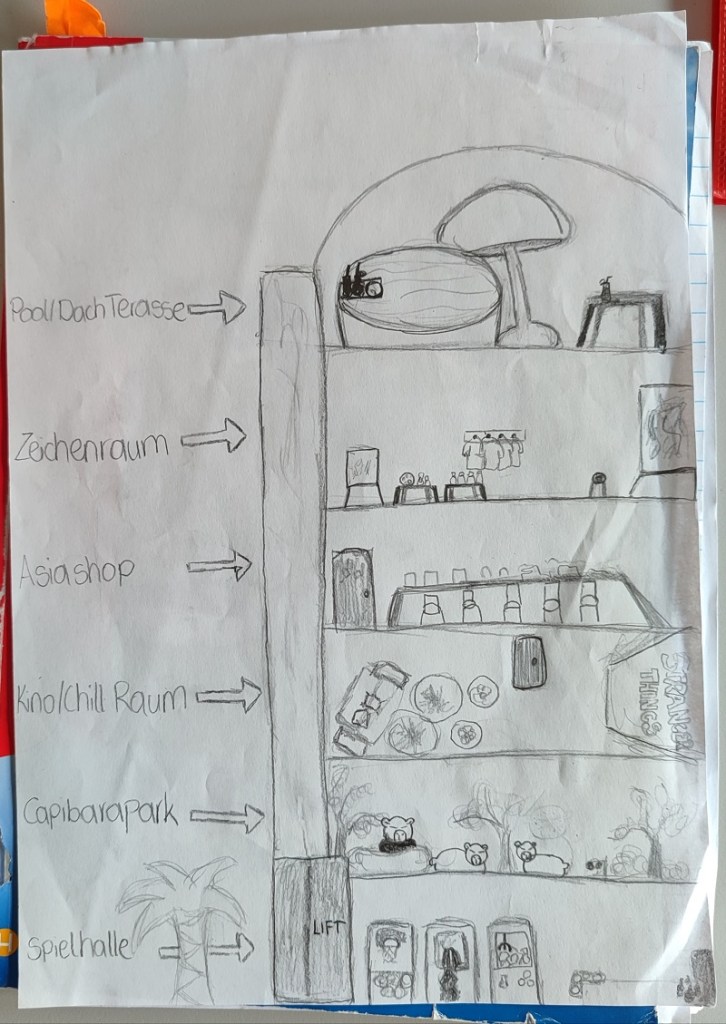 Pool/DachTerasse
Zeichenraum
Asiashop
Kino/Chill Raum
STRANGER
THINGS
Capibarapark
LIFT
Spielhalle